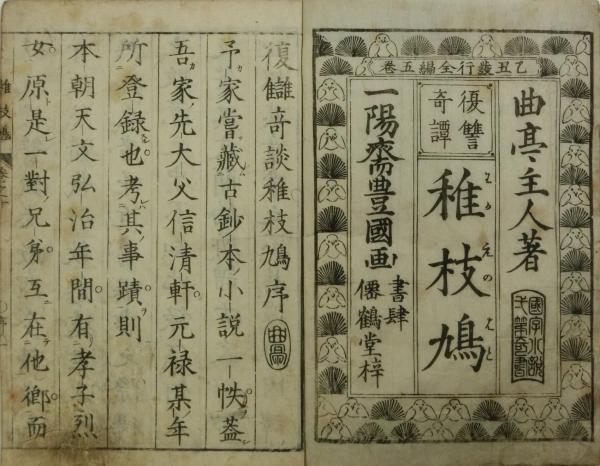 乙丑發行全編五卷
曲亭主人著
國字小說
復讐
奇譚
稚枝鳩
わかえのはと
一陽齋豊國画
書肆
僊鶴堂梓
復讎奇談稚枝鳩序
予家嘗藏古鈔本小說一帙蓋
吾家先大父信清軒元禄某年
所登録也考其事蹟則
本朝天文弘治年間有孝子烈
女原是一對兄身互在他鄉而